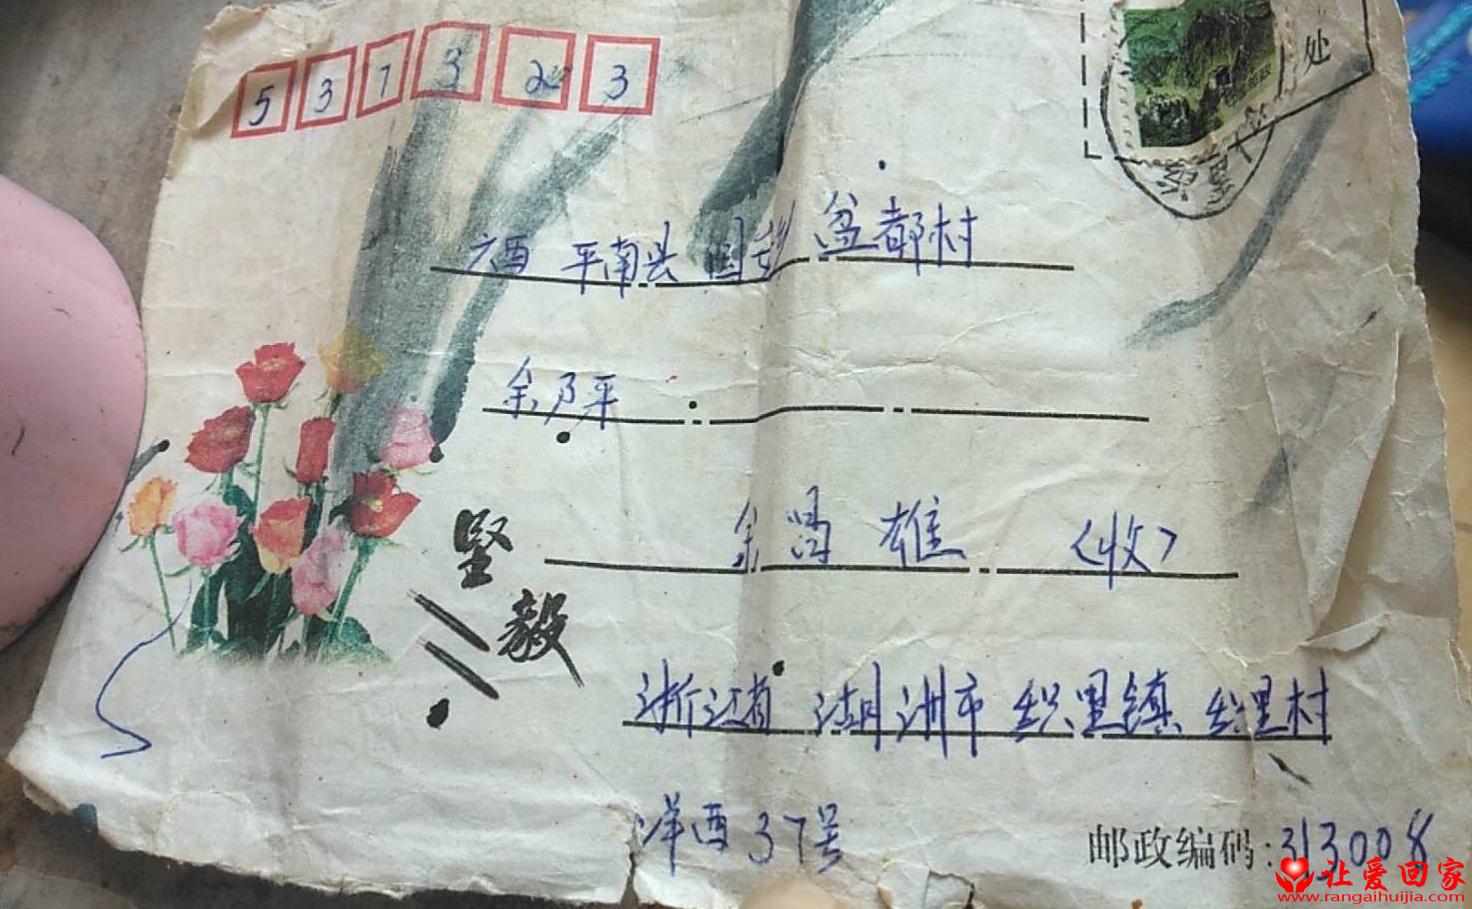 537323
处
广西 平南县 国安乡 盆都村
余乃平
余 雄 〈收〉
坚
毅
浙江省 湖洲市 织里镇 织里村
洋西37号
邮政编码:313008
让爱回家
www.rangaihuijia.com